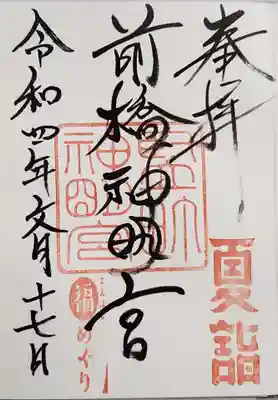 奉拝
夏詣
前橋神明宮
令和四年文月十七日
めぐり